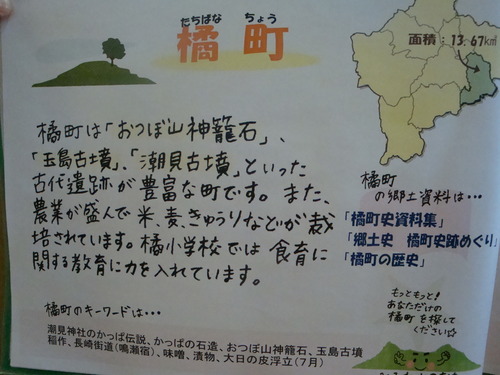 たちばな ちょう
橘町
面積：13.67k㎡
橘町は「おつぼ山神籠石」、
「玉島古墳」、「潮見古墳」といった
古代遺跡が豊富な町です。また、
農業が盛んで米、麦、きゅうりなどが栽
培されています。橘小学校では食育に
関する教育に力を入れています。
橘町
の郷土資料は・・・
「橘町史資料集」
「郷土史　橘町史跡めぐり」
「橘町の歴史」
もっともっと！
あなただけの
橘町を探して
ください☆
橘町のキーワードは・・・
潮見神社のかっぱ伝説、かっぱの石造、おつぼ山神籠石、玉島古墳
稲作、長崎街道（鳴瀬宿）、味噌、漬物、大日の皮浮立（７月）